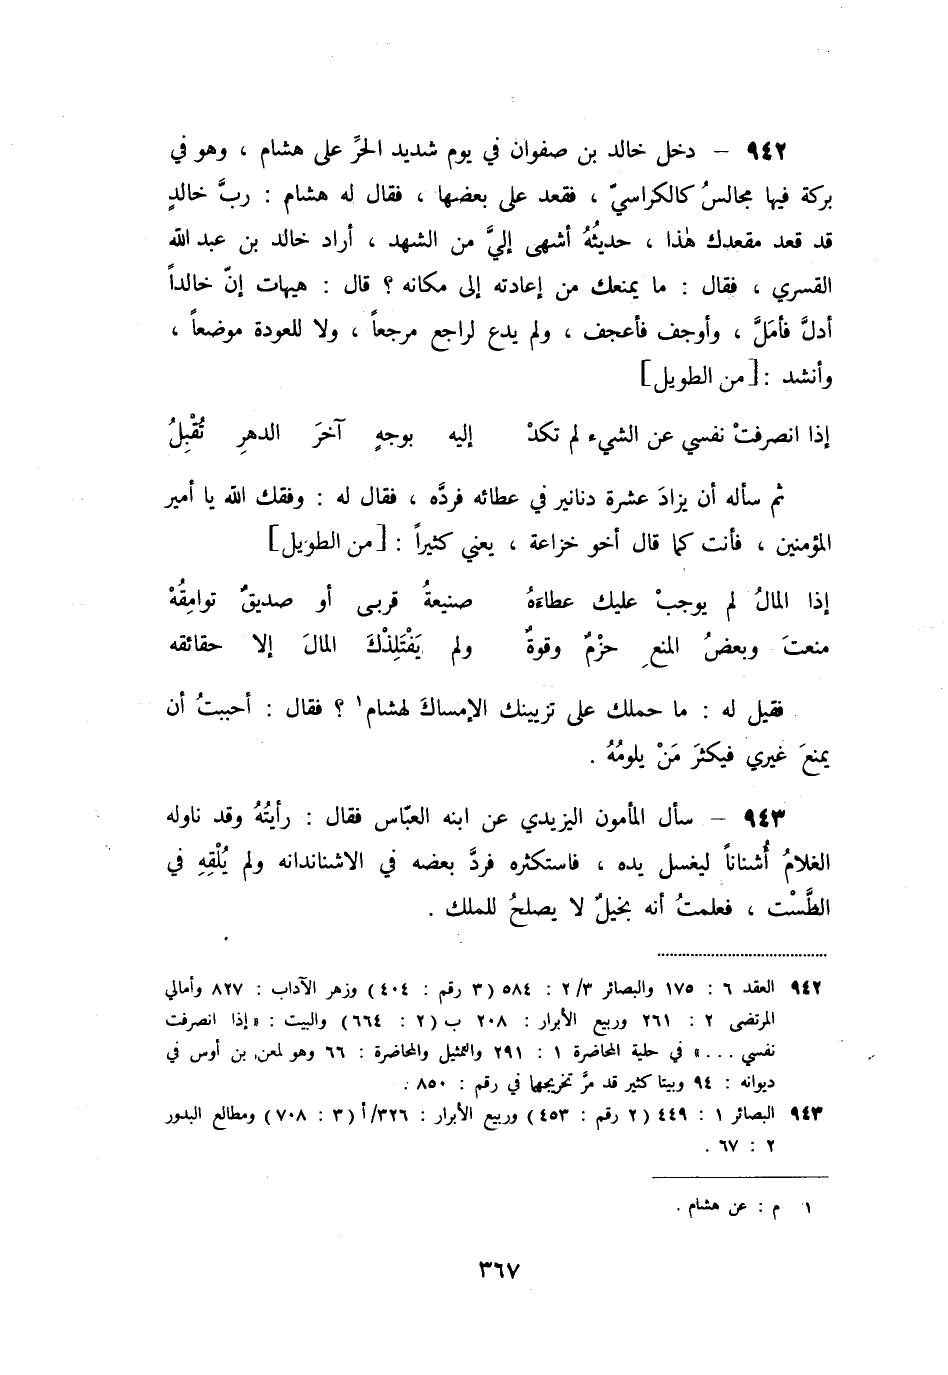 ٩٤٢ – دخل خالد بن صفوان في يوم شديد الحرِّ على هشام ، وهو في
بركة فيها مجالسُ كالكراسيّ ، فقعد على بعضها ، فقال له هشام : ربَّ خالدٍ
قد قعد مقعدك هٰذا ، حديثُهُ أشهى إليَّ من الشهد ، أراد خالد بن عبد الله
القسري ، فقال : ما يمنعك من إعادته إلى مكانه ؟ قال : هيهات إنّ خالداً
أدلَّ فأمَلَّ ، وأوجف فأعجف ، ولم يدع لراجع مرجعاً ، ولا للعودة موضعاً ،
وأنشد : [من الطويل]
إذا انصرفتْ نفسي عن الشيء لم تكدْ إليه بوجهٍ آخرَ الدهرِ تُقْبِلُ
ثم سأله أن يزادَ عشرة دنانير في عطائه فردَّه ، فقال له : وفقك الله يا أمير
المؤمنين ، فأنت كما قال أخو خزاعة ، يعني كثيراً : [من الطويل]
إذا المالُ لم يوجبْ عليك عطاءَهُ صنيعةُ قربى أو صديقٌ توامِقُهْ
منعتَ وبعضُ المنعِ حزْمٌ وقوةٌ ولم يَفْتَلِذْكَ المالَ إلا حقائقه
فقيل له : ما حملك على تزيينك الإمساكَ لهشام١ ؟ فقال : أحببتُ أن
يمنعَ غيري فيكثرَ مَنْ يلومُهُ .
٩٤٣ – سأل المأمون اليزيدي عن ابنه العبّاس فقال : رأيتُهُ وقد ناوله
الغلامُ أُشناناً ليغسل يده ، فاستكثره فردَّ بعضه في الاشناندانه ولم يُلْقِهِ في
الطَّسْت ، فعلمتُ أنه بخيلٌ لا يصلحُ للملك .
٩٤٢ العقد ٦ : ١٧٥ والبصائر ٣/ ٢ : ٥٨٤ (٣ رقم : ٤٠٤) وزهر الآداب : ٨٢٧ وأمالي
المرتضى ٢ : ٢٦١ وربيع الأبرار : ٢٠٨ ب (٢ : ٦٦٤) والبيت : «إذا انصرفت
نفسي ...» في حلية المحاضرة ١ : ٢٩١ والتمثيل والمحاضرة : ٦٦ وهو لمعن بن أوس في
ديوانه : ٩٤ وبيتا كثير قد مرَّ تخريجها في رقم : ٨٥٠ .
٩٤٣ البصائر ١ : ٤٤٩ (٢ رقم : ٤٥٣) وربيع الأبرار : ٣٢٦/أ (٣ : ٧٠٨) ومطالع البدور
٢ : ٦٧ .
١ م : عن هشام .
٣٦٧